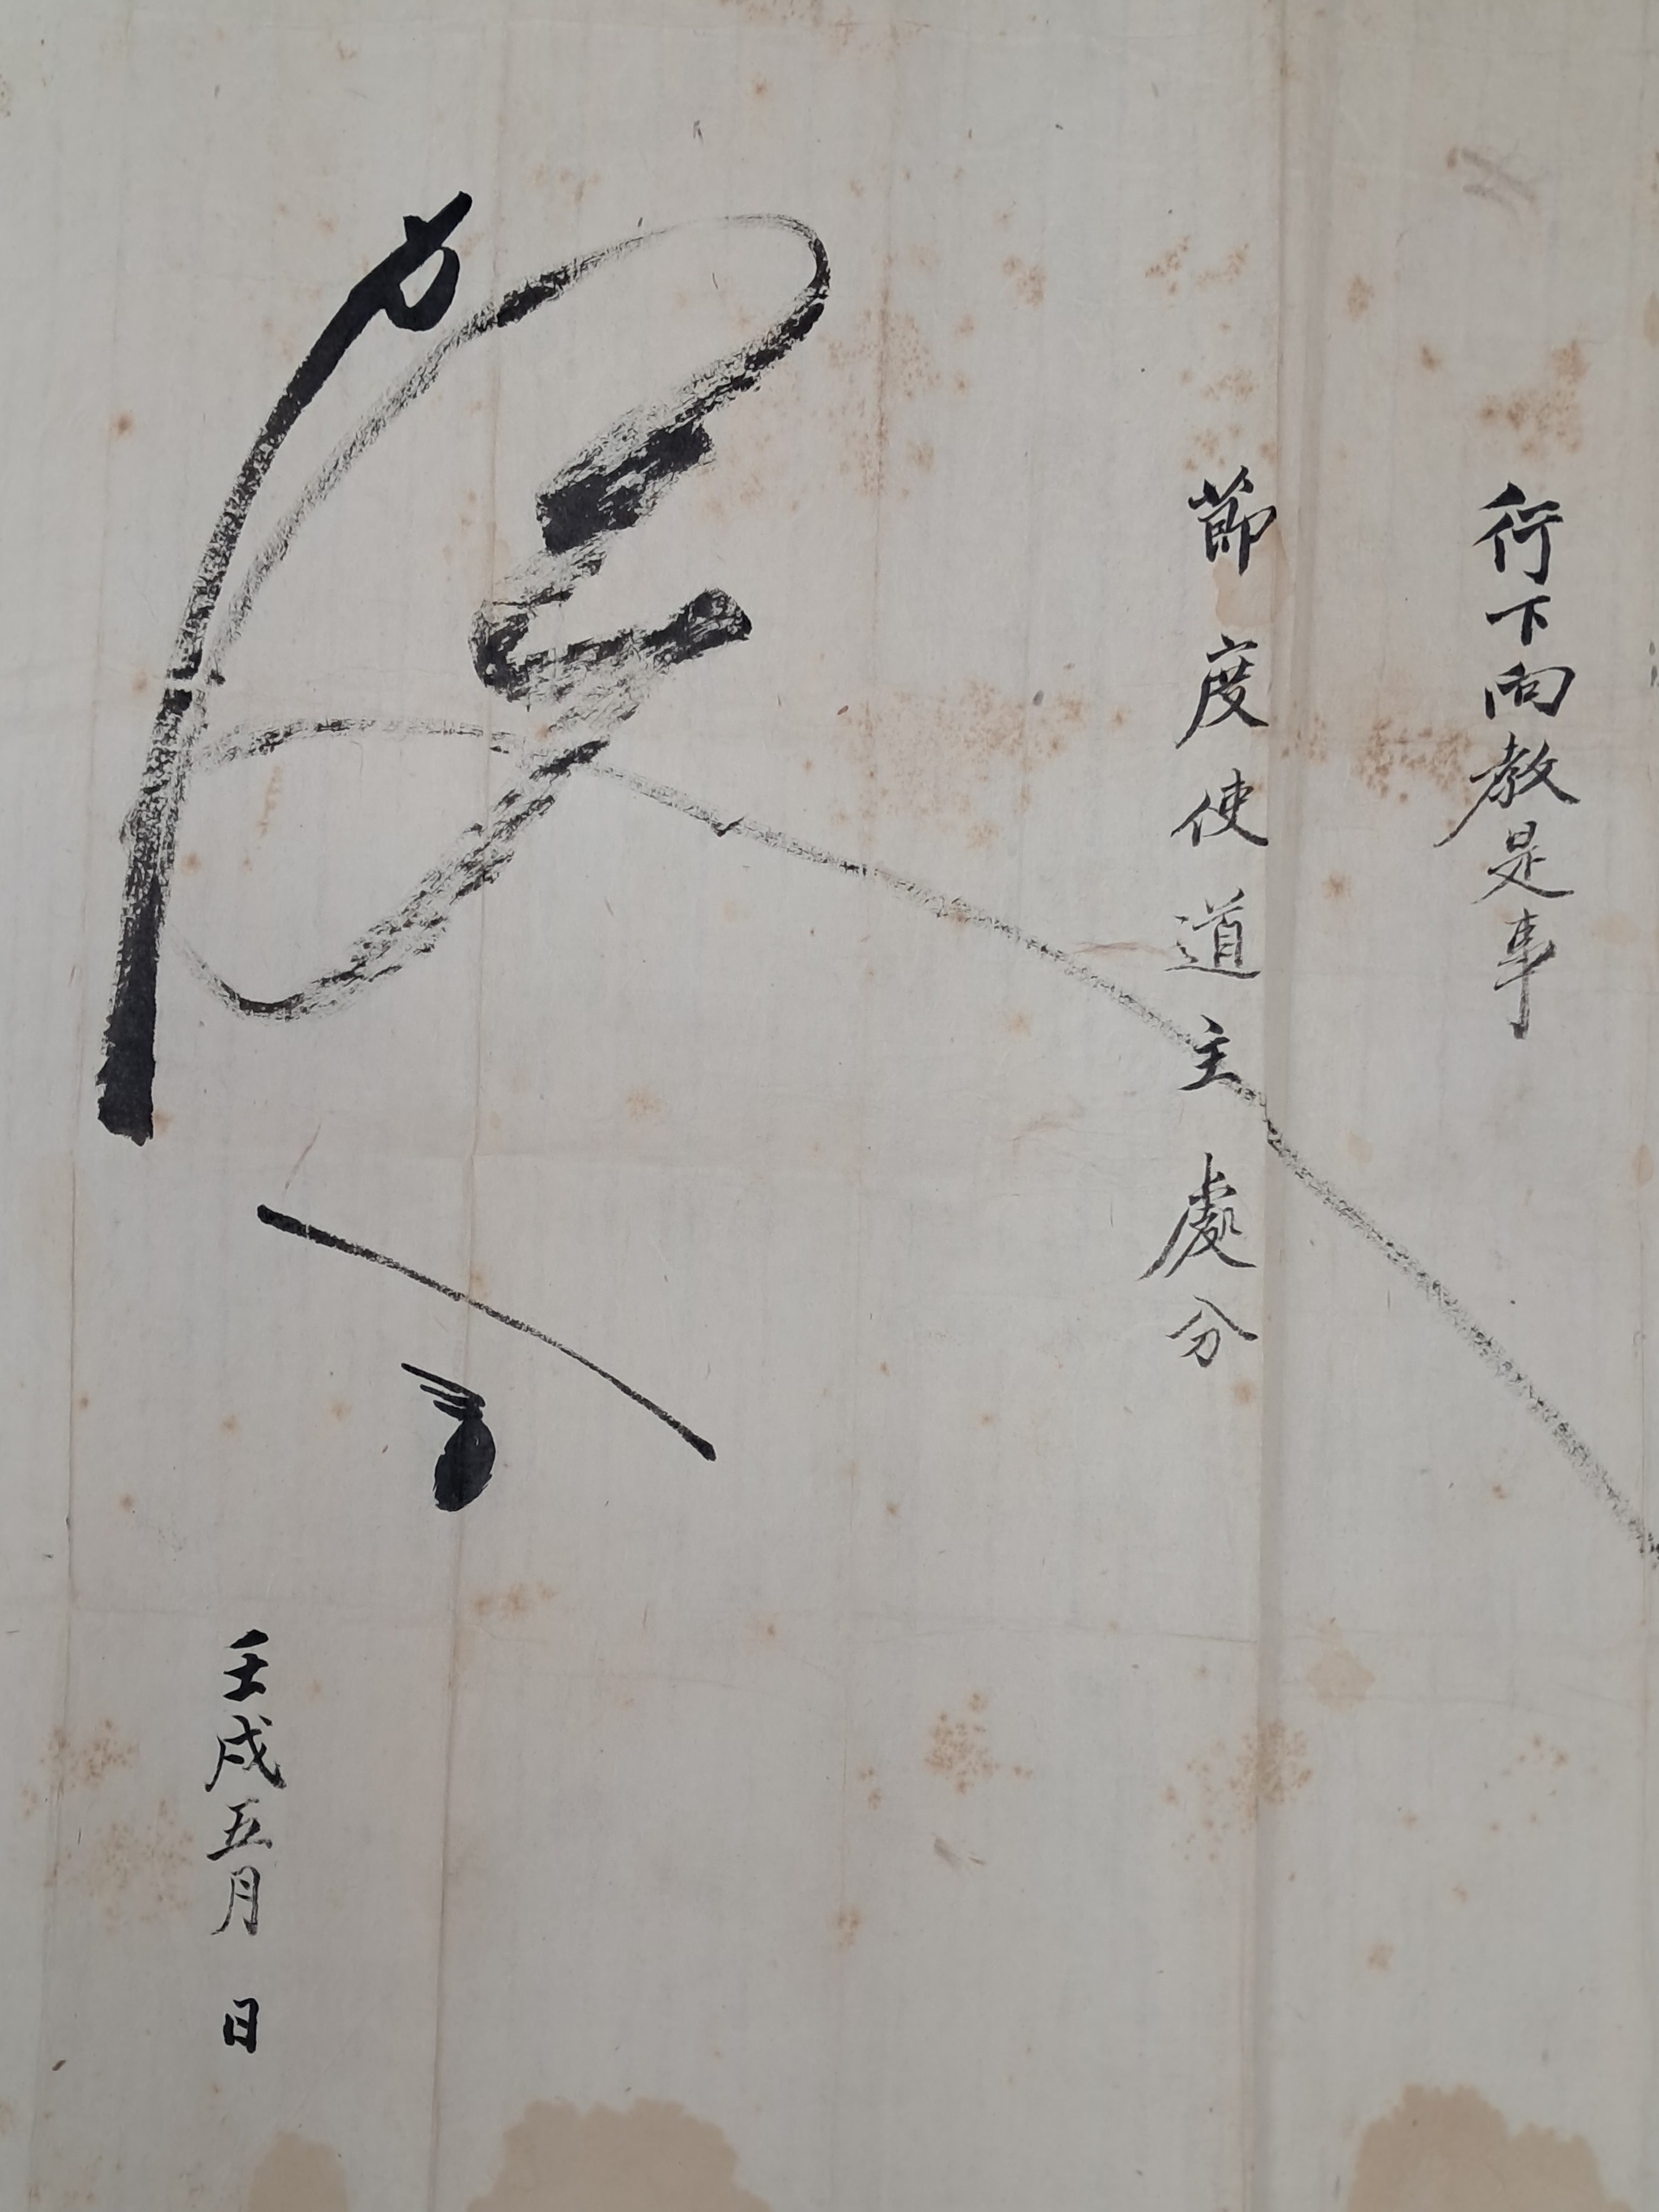 行下向敎是事
節度使道主處分
壬戌五月 日